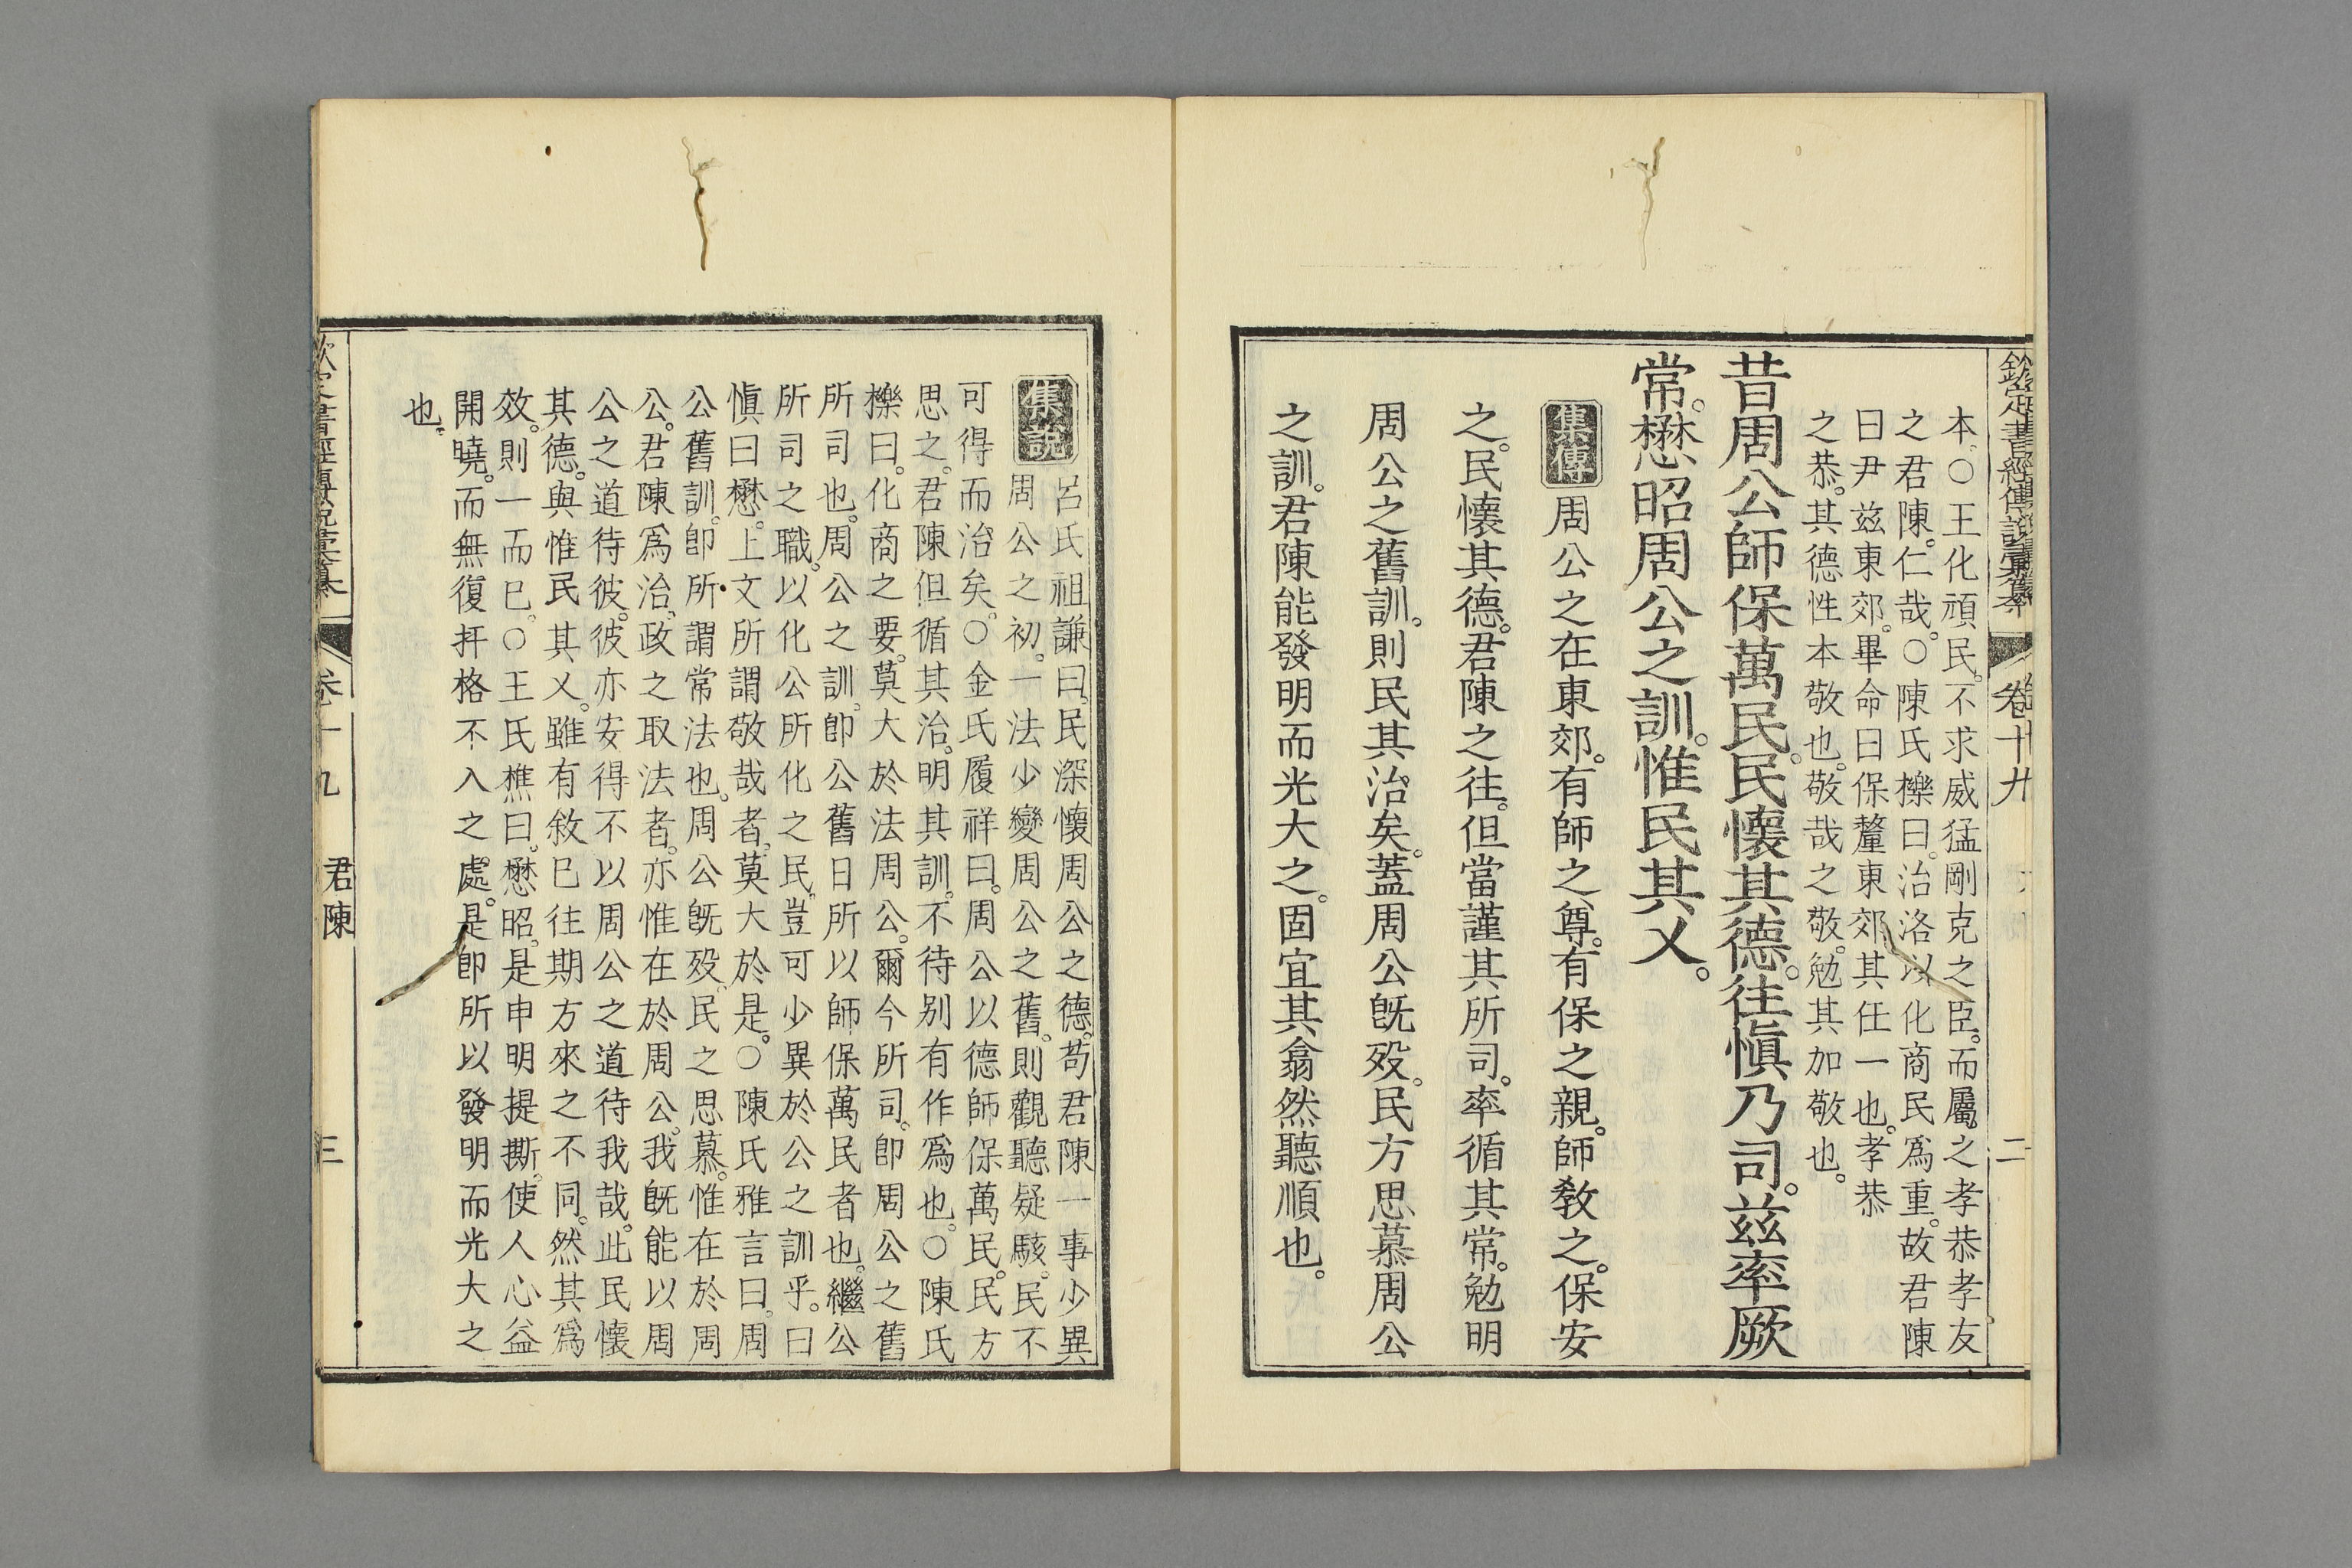 欽定書經傳說彙纂 卷十九 二
本。○王化頑民。不求威猛剛克之臣。而屬之孝恭孝友
之君陳。仁哉。○陳氏櫟曰。治洛以化商民爲重。故君陳
曰尹茲東郊。畢命曰保釐東郊。其任一也。孝恭
之恭。其德性本敬也。敬哉之敬。勉其加敬也。
昔周公師保萬民。民懷其德。往愼乃司。茲率厥
常。懋昭周公之訓。惟民其乂。
集傳 周公之在東郊。有師之尊。有保之親。師敎之。保安
之。民懷其德。君陳之往。但當謹其所司。率循其常。勉明
周公之舊訓。則民其治矣。蓋周公旣歿。民方思慕周公
之訓。君陳能發明而光大之。固宜其翕然聽順也。
集說 呂氏祖謙曰。民深懷周公之德。苟君陳一事少異
周公之初。一法少變周公之舊。則觀聽疑駭。民不
可得而治矣。○金氏履祥曰。周公以德師保萬民。民方
思之。君陳但循其治。明其訓。不待别有作爲也。○陳氏
櫟曰。化商之要。莫大於法周公。爾今所司。卽周公之舊
所司也。周公之訓。卽公舊日所以師保萬民者也。繼公
所司之職。以化公所化之民。豈可少異於公之訓乎。曰
愼曰懋。上文所謂敬哉者。莫大於是。○陳氏雅言曰。周
公舊訓。卽所謂常法也。周公旣歿。民之思慕。惟在於周
公。君陳爲治。政之取法者。亦惟在於周公。我旣能以周
公之道待彼。彼亦安得不以周公之道待我哉。此民懷
其德。與惟民其乂。雖有敘已往期方來之不同。然其爲
效。則一而已。○王氏樵曰。懋昭。是申明提撕。使人心益
開曉。而無復扞格不入之處。是卽所以發明而光大之
也。
欽定書經傳說彙纂 卷十九 君陳 三